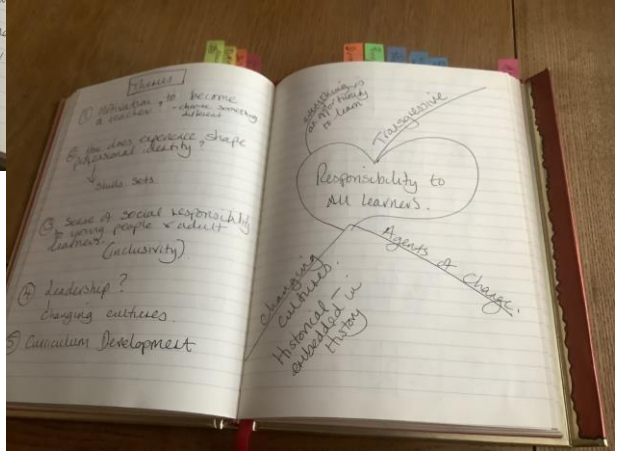 Themes
① Motivation to become
a teacher - choose something
different
② How does experience shape
professional identity?
↓
skills sets.
③ Sense of social responsibility
to young people & adult
learners.
(inclusivity)
④ Leadership?
Changing cultures.
⑤ Curriculum Development
everything is
an opportunity
to learn
Transgressive
Responsibility to
All learners.
Agents of Change.
Changing
cultures.
Historical -
embedded in
History